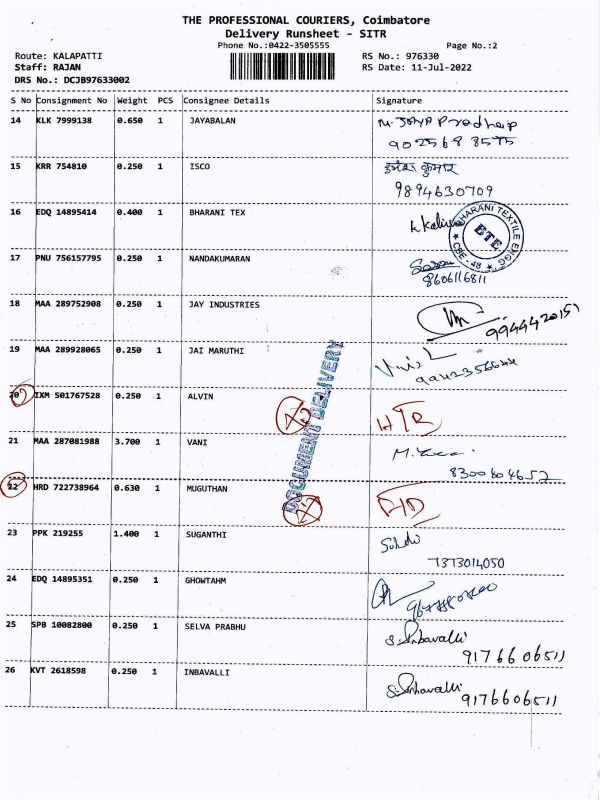 THE PROFESSIONAL COURIERS, Coimbatore
Delivery Runsheet - SITR
Phone No.:0422-3505555 Page No.:2
Route: KALAPATTI RS No.: 976330
Staff: RAJAN RS Date: 11-Jul-2022
DRS No.: DCJB97633002
S No Consignment No Weight PCS Consignee Details Signature
14 KLK 7999138 0.650 1 JAYABALAN M. JAYA Pradheip
9025688575
15 KRR 754810 0.250 1 ISCO कुमार
9894630709
16 EDQ 14895414 0.400 1 BHARANI TEX
BHARANI TEXTILE ENGG
ETE
CBE - 48
17 PNU 756157795 0.250 1 NANDAKUMARAN
8606116811
18 MAA 289752908 0.250 1 JAY INDUSTRIES
19 MAA 289928065 0.250 1 JAI MARUTHI
DOCUMENT DELIVERY
20 IXM 501767528 0.250 1 ALVIN
21 MAA 287081988 3.700 1 VANI
8300804652
22 HRD 722738964 0.630 1 MUGUTHAN
23 PPK 219255 1.400 1 SUGANTHI
7373014050
24 EDQ 14895351 0.250 1 GHOWTAHM
25 SPB 10082800 0.250 1 SELVA PRABHU S. Inbavalli
9176606511
26 KVT 2618598 0.250 1 INBAVALLI S. Inbavalli
9176606511